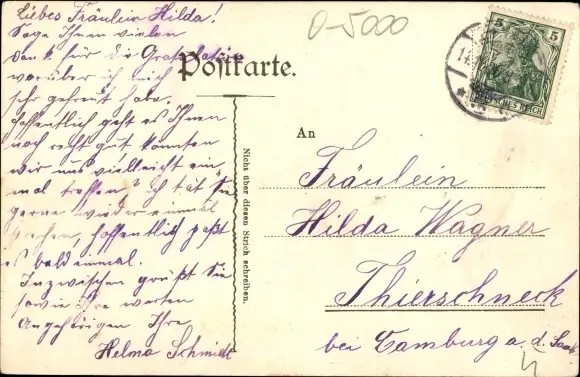 Liebes Fräulein Hilda!
Sage Ihnen vielen
Dank für die Gratulation
worüber ich mich
sehr gefreut habe.
Hoffentlich geht es Ihnen
noch recht gut könnten
wir uns vielleicht ein
mal treffen? ich tät Sie
gerne wieder einmal
sehen, hoffentlich paßt
es bald einmal.
Inzwischen grüßt Sie
sowie Ihre werten
Angehörigen Ihre
Helma Schmidt
0-5000
Postkarte.
5 5
DEUTSCHES REICH
Nicht über diesen Strich schreiben.
An
Fräulein
Hilda Wagner
Thierschneck
bei Camburg a. d. Saale